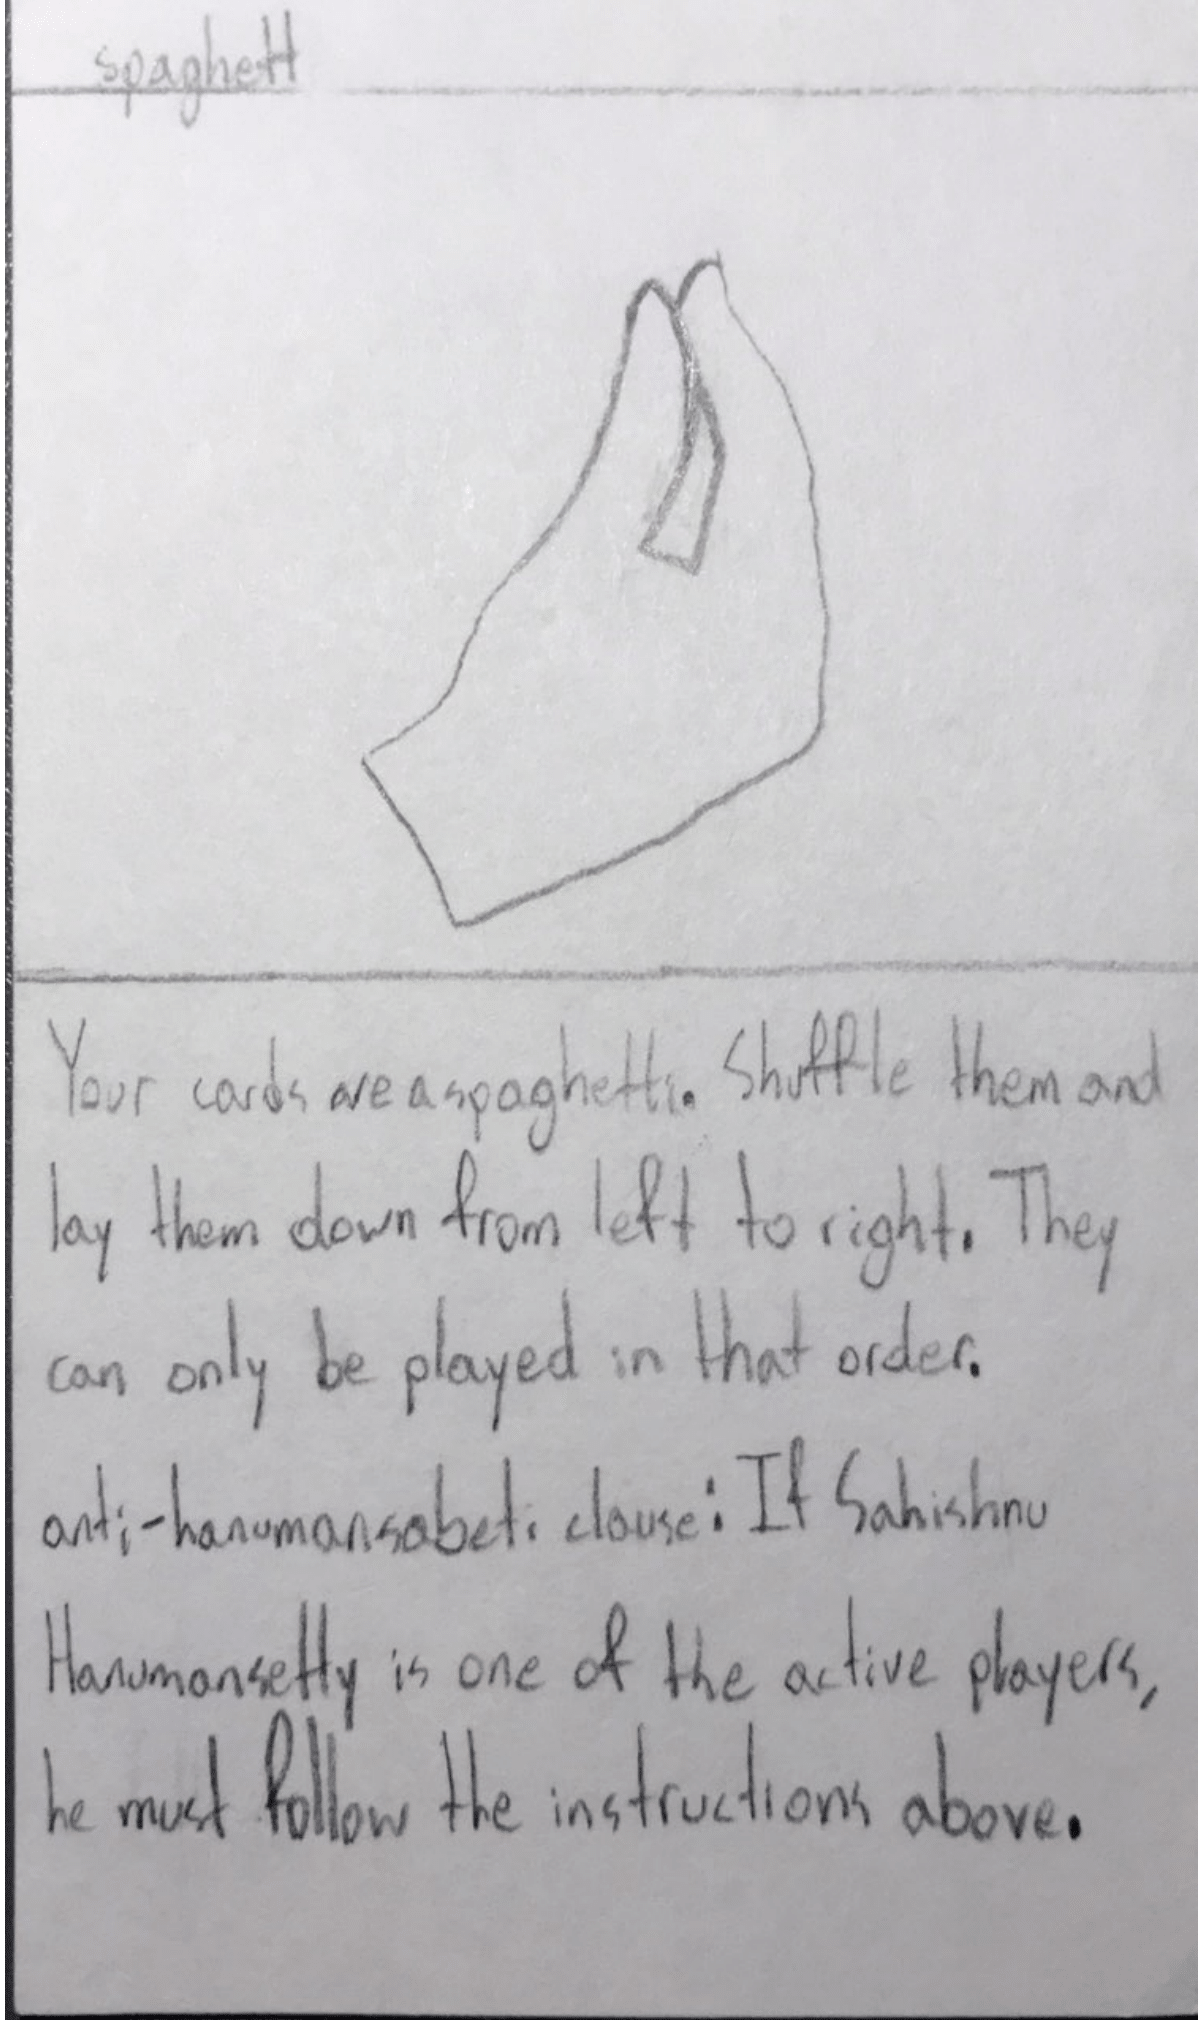 spaghett
Your cards are a spaghetti. Shuffle them and
lay them down from left to right. They
can only be played in that order.
anti-hanumansabeti clause: If Sahishnu
Hanumansetty is one of the active players,
he must follow the instructions above.